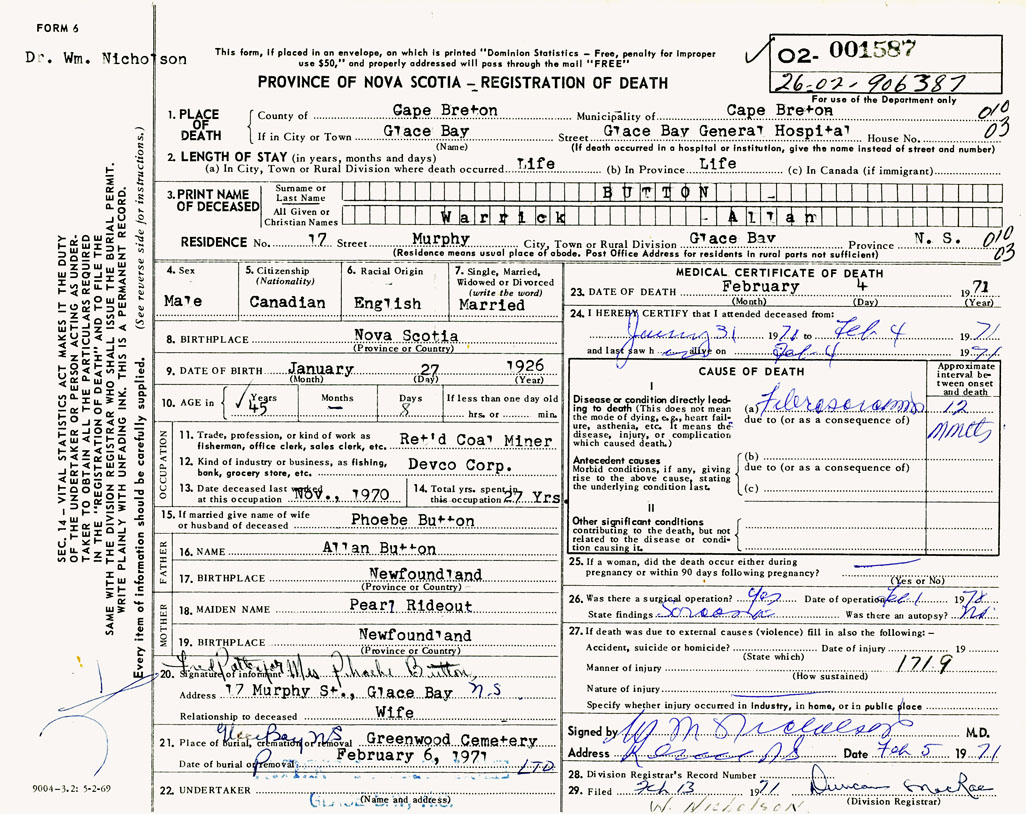 FORM 6
Dr. Wm. Nicholson
This form, if placed in an envelope, on which is printed "Dominion Statistics – Free, penalty for improper
use $50," and properly addressed will pass through the mail "FREE"
O2- 001587
26-02-906387
For use of the Department only
PROVINCE OF NOVA SCOTIA – REGISTRATION OF DEATH
SEC. 14 – VITAL STATISTICS ACT MAKES IT THE DUTY
OF THE UNDERTAKER OR PERSON ACTING AS UNDER-
TAKER TO OBTAIN ALL THE PARTICULARS REQUIRED
IN THE "REGISTRATION OF DEATH" AND TO FILE THE
SAME WITH THE DIVISION REGISTRAR WHO SHALL ISSUE THE BURIAL PERMIT.
WRITE PLAINLY WITH UNFADING INK. THIS IS A PERMANENT RECORD.
Every item of information should be carefully supplied. (See reverse side for instructions.)
1. PLACE OF DEATH
County of Cape Breton Municipality of Cape Breton 010
If in City or Town Glace Bay Street Glace Bay General Hospital House No. 03
(Name) (If death occurred in a hospital or institution, give the name instead of street and number)
2. LENGTH OF STAY (in years, months and days)
(a) In City, Town or Rural Division where death occurred Life (b) In Province Life (c) In Canada (if immigrant)
3. PRINT NAME OF DECEASED
Surname or Last Name BUTTON
All Given or Christian Names Warrick Allan
RESIDENCE No. 17 Street Murphy City, Town or Rural Division Glace Bay Province N. S. 010 03
(Residence means usual place of abode. Post Office Address for residents in rural parts not sufficient)
4. Sex
Male
5. Citizenship (Nationality)
Canadian
6. Racial Origin
English
7. Single, Married, Widowed or Divorced (write the word)
Married
8. BIRTHPLACE Nova Scotia
(Province or Country)
9. DATE OF BIRTH January 27 1926
(Month) (Day) (Year)
10. AGE in Years 45 Months – Days 8 If less than one day old hrs. or min.
OCCUPATION
11. Trade, profession, or kind of work as fisherman, office clerk, sales clerk, etc. Ret'd Coal Miner
12. Kind of industry or business, as fishing, bank, grocery store, etc. Devco Corp.
13. Date deceased last worked at this occupation Nov., 1970
14. Total yrs. spent in this occupation 27 Yrs.
15. If married give name of wife or husband of deceased Phoebe Button
FATHER
16. NAME Allan Button
17. BIRTHPLACE Newfoundland
(Province or Country)
MOTHER
18. MAIDEN NAME Pearl Rideout
19. BIRTHPLACE Newfoundland
(Province or Country)
20. Signature of informant Mrs Phoebe Button
Address 17 Murphy St., Glace Bay N.S
Relationship to deceased Wife
21. Place of burial, cremation or removal Glace Bay NS Greenwood Cemetery
Date of burial or removal February 6, 1971
LTD
22. UNDERTAKER
(Name and address)
9004-3.2: 5-2-69
MEDICAL CERTIFICATE OF DEATH
23. DATE OF DEATH February 4 1971
(Month) (Day) (Year)
24. I HEREBY CERTIFY that I attended deceased from:
January 31 1971 to Feb 4 1971
and last saw h alive on Feb 4 1971
CAUSE OF DEATH
Approximate interval between onset and death
I
Disease or condition directly leading to death (This does not mean the mode of dying, e.g., heart failure, asthenia, etc. It means the disease, injury, or complication which caused death.)
(a) Fibrosarcoma 12 months
due to (or as a consequence of)
Antecedent causes
Morbid conditions, if any, giving rise to the above cause, stating the underlying condition last.
(b)
due to (or as a consequence of)
(c)
II
Other significant conditions contributing to the death, but not related to the disease or condition causing it.
25. If a woman, did the death occur either during pregnancy or within 90 days following pregnancy?
(Yes or No)
26. Was there a surgical operation? Yes Date of operation Feb 1 19
State findings Sarcoma Was there an autopsy? No
27. If death was due to external causes (violence) fill in also the following: –
Accident, suicide or homicide? Date of injury 19
(State which)
Manner of injury 1719
(How sustained)
Nature of injury
Specify whether injury occurred in industry, in home, or in public place
Signed by W M Nicholson M.D.
Address NS Date Feb 5 1971
28. Division Registrar's Record Number
29. Filed Feb 13 1971 Duncan MacRae
(Division Registrar)
W. NICHOLSON